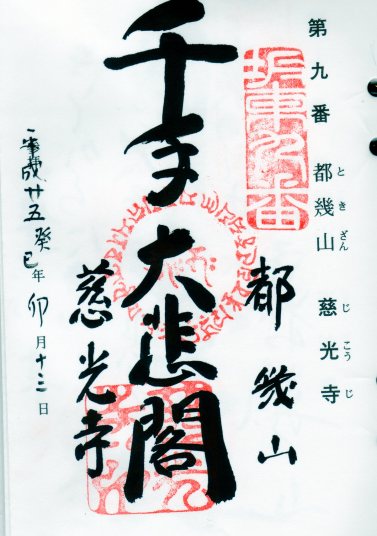 第九番 都幾山 慈光寺
ときざん じこうじ
坂東九番
都幾山
千手大悲閣
慈光寺
平成廿五癸巳年卯月十三日